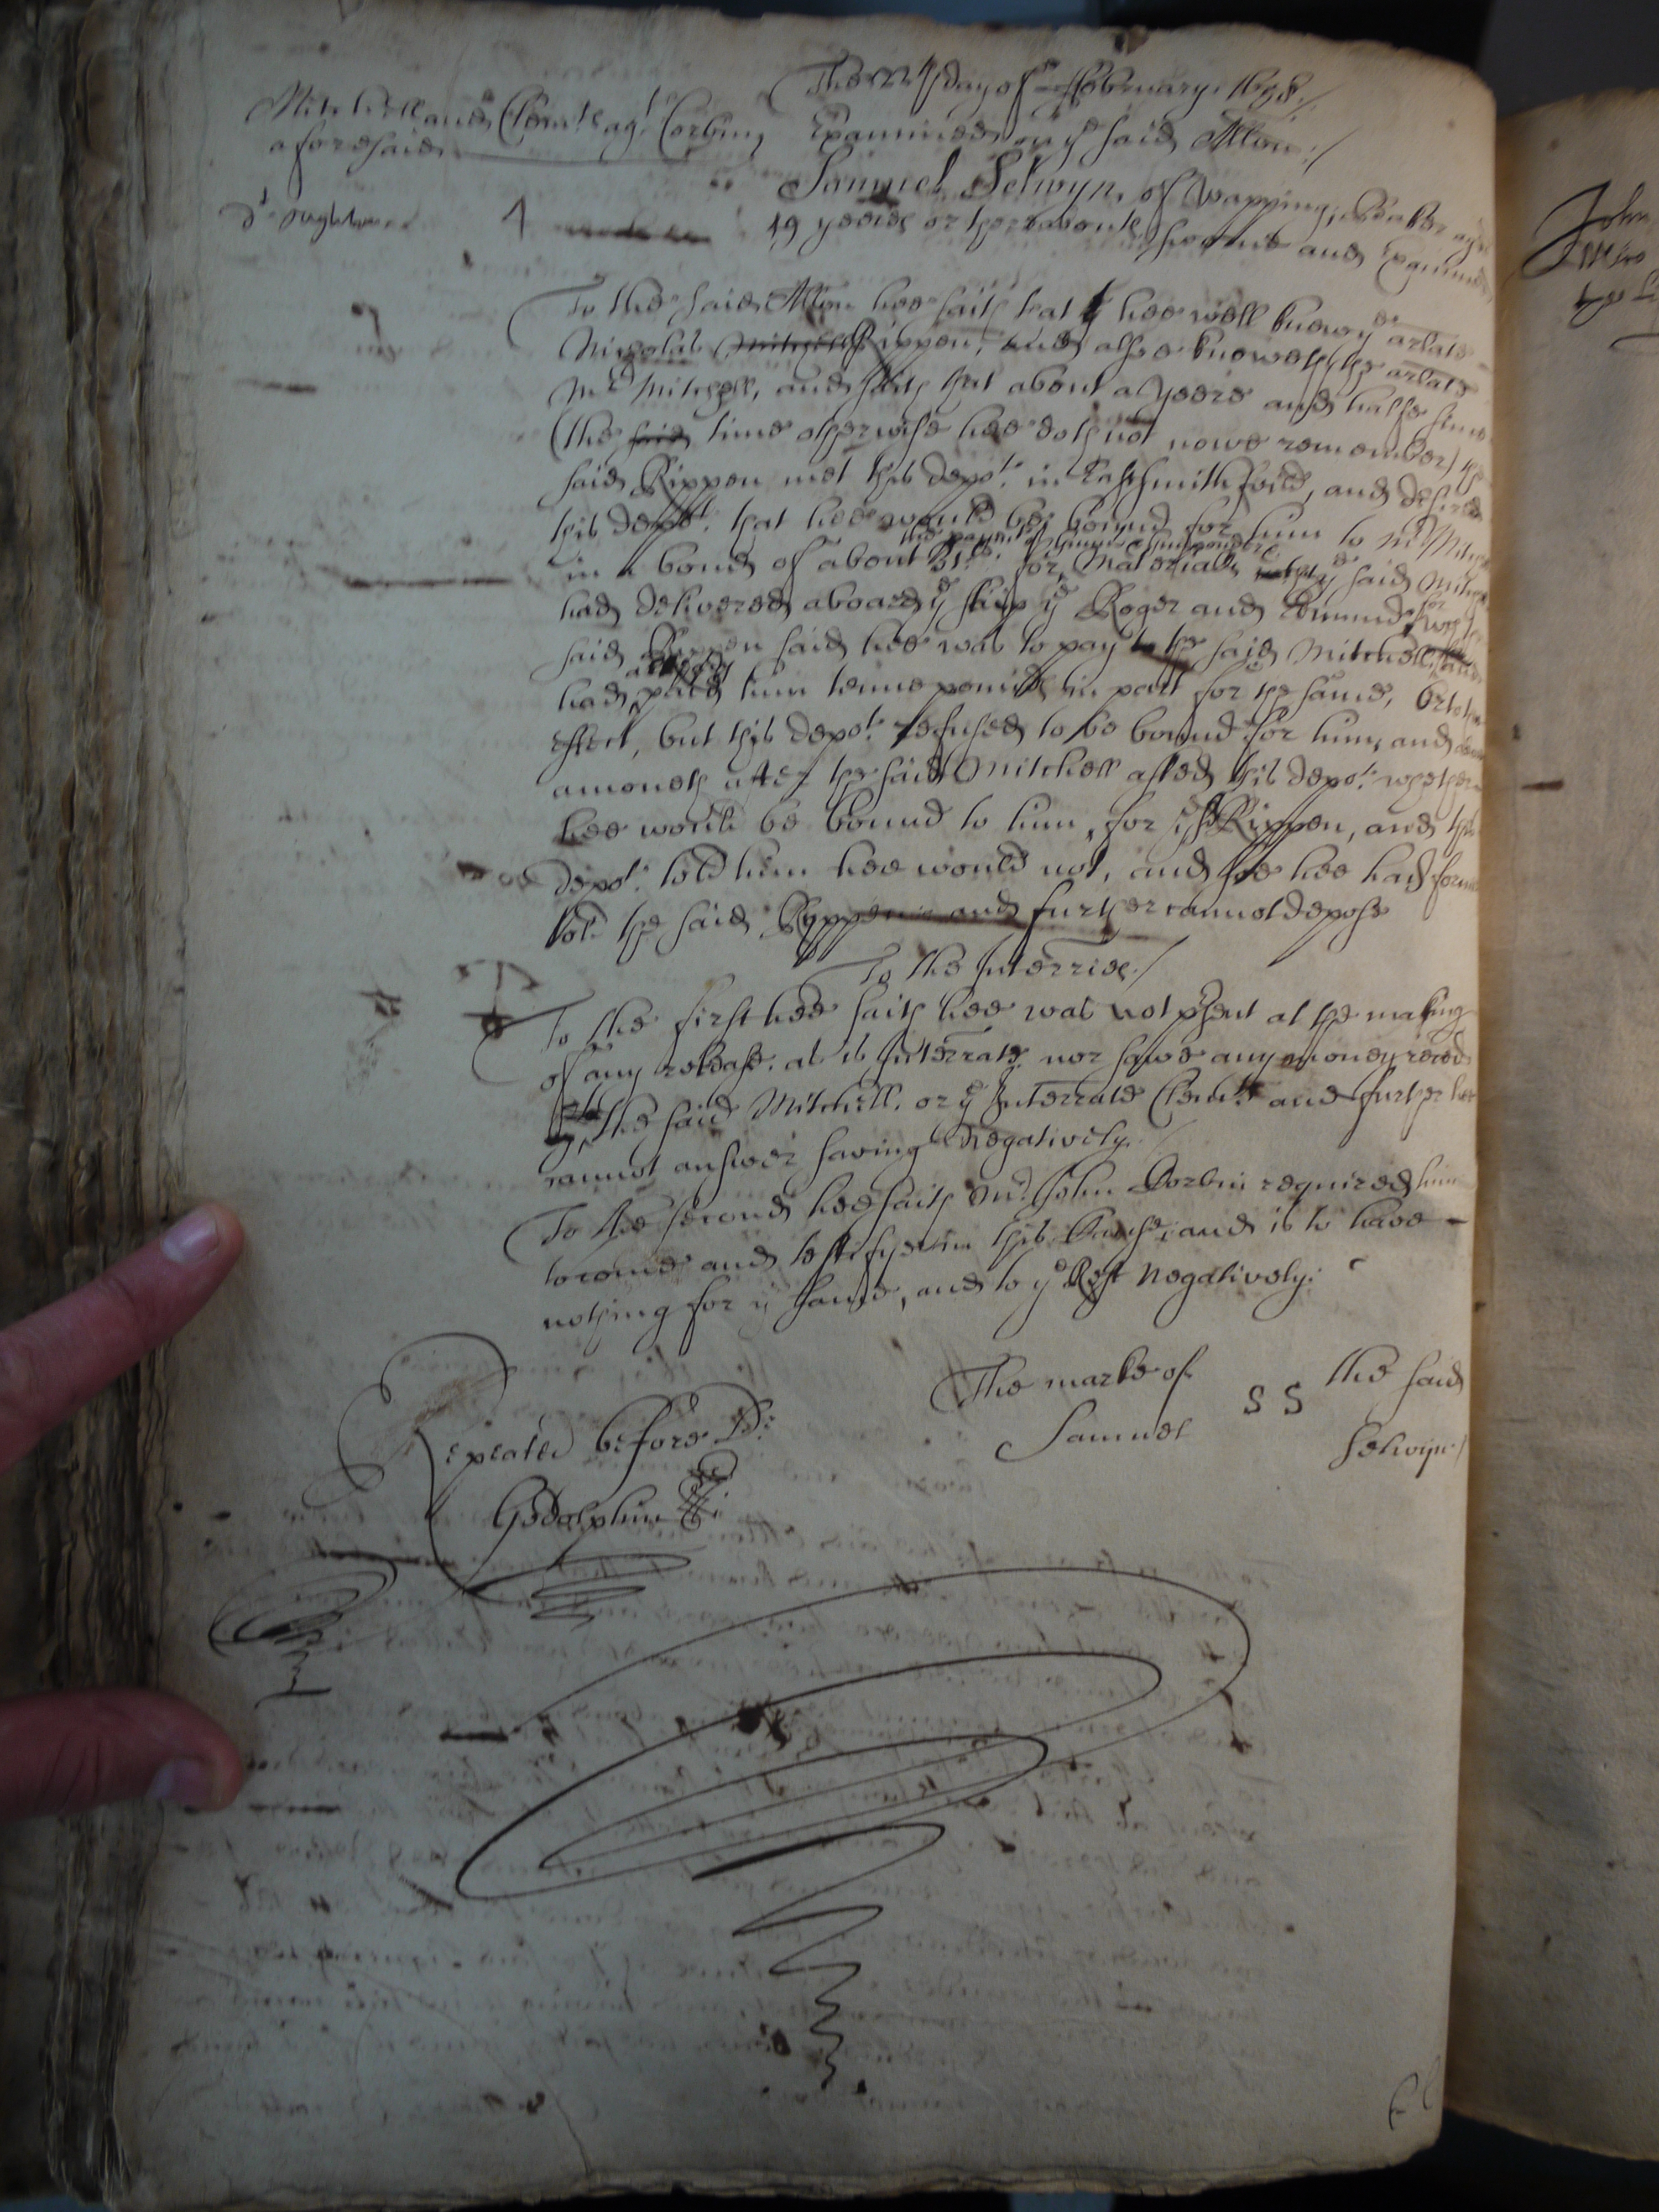 The day of February. 1658./
Mitchell and Clem.te ag.t Corbin, Examined on y.e said Allon:/
aforesaid
Samuel Selwyn, of Wapping,
4 19 yeeres or thereabouts sworne and Examined
To the said Allon hee saith that hee well knew y.e arlate
Nicholas Mitchell Rippen, and alsoe knoweth the arlate
M.r Mitchell, and saith that about a yeere and halfe since
(the said time otherwise hee doth not nowe remember) the
said Rippen met this depo.t in Eastsmithfeild, and desired
this depo.t that hee would bee bound for him to M.r Mitchell
the paym.t of
in a bond of about for Materialls y.e said Mitchell
had delivered aboard y.e ship y.e Roger and Edmund, for
said Rippen said hee was to pay to the said Mitchell, and
already
had paid him tenne pounds in part for the same, or to the
effect, but this depo.t refused to be bound for him, and about
a moneth after the said Mitchell asked this depo.t whether
hee would be bound to him, for y.e s.d Rippen, and this
depo.t told him hee would not, and soe hee had
told the said Ryppen and further cannot depose
To the Interries./
To the first hee saith hee was not p.rsent at the making
of any release. as is Interrate. nor sawe any money
by the said Mitchell. or y.e Interrate Clem.te and further hee
cannot answer saving Negatively./
To the second hee saith M.r John Corbin required him
to come and testifye in this Cause, and is to have
nothing for y.e same, and to y.e Rest Negatively:
The marke of S S the said
Samuel Selwyn./
Repeated before D.r
Godolphin